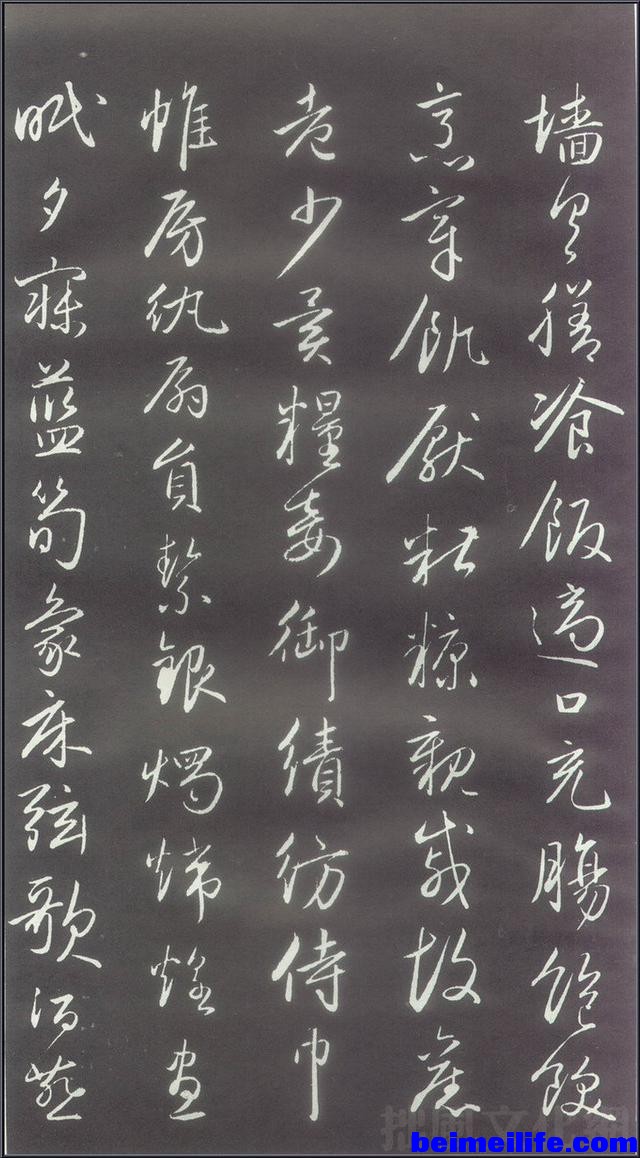 墙具膳飡飯適口充腸飽飫
烹宰飢厭糠親戚故舊
老少異糧妾御績紡侍巾
帷房紈扇員絜銀燭煒煌晝
眠夕寐藍筍象床弦歌酒
拙風文化網
beimeilife.com